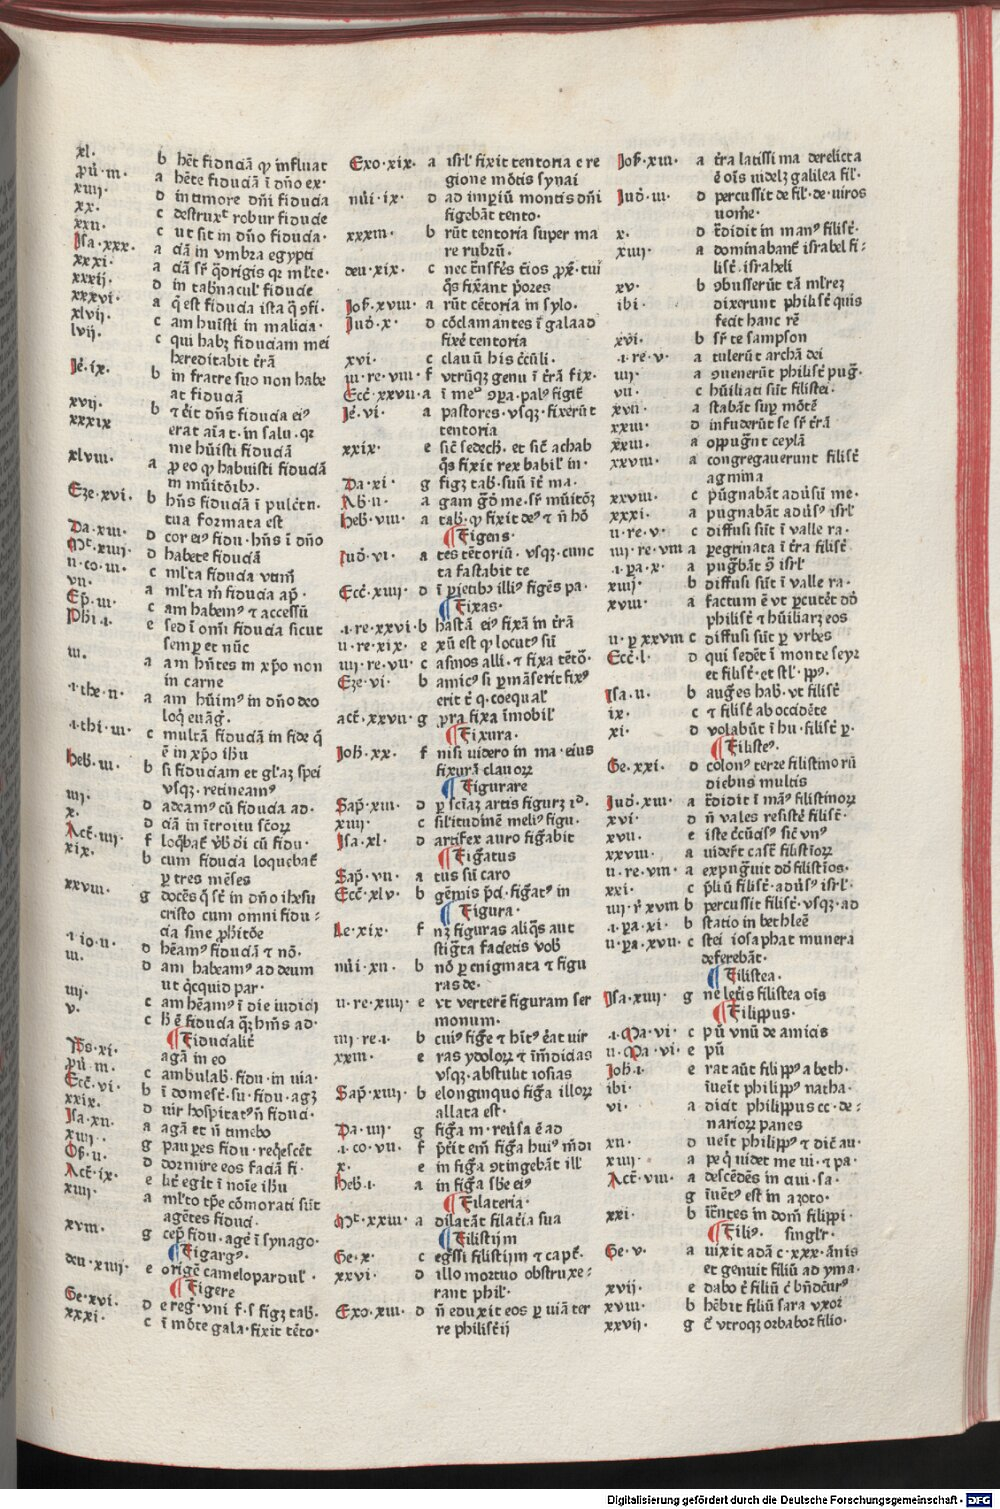 xl. b hēt fiduciā ꝙ influat
ꝓū·iii· a hēte fiduciā ī dn̄o ex·
xiiij· d in timore dn̄i fiducia
xx· c destrux̄ robur fiducie
xxii· c ut sit in dn̄o fiducia·
Jsa·xxx· a ciā in vmbra egypti
xxxi· a ciā sr̄ q̄drigis qz ml̄te·
xxxij· d in tab̄nacul̄ fiducie
xxxvi· a q̄ est fiducia ista q̄ ꝯfi·
xlvij· c am huīsti in malicia·
lvij· c qui habꝫ fiduciam mei
hereditabit t̄rā
Jē·ix· b in fratre suo non habe
at fiduciā
xvij· b ⁊ ēit dn̄s fiducia eiꝰ
xxxix erat aīa t· in salu· qz
me hūisti fiduciā
xlviii· a ꝑ eo ꝙ habuisti fiduciā
in mūitōibꝫ
Eze·xvi· b hn̄s fiduciā ī pulc̄t n·
tua formata est
Da·xiii· d cor eiꝰ fidu·hn̄s ī dn̄o
Mͭ·xiiij· d habete fiduciā
ii·co·iii· c ml̄ta fiducia vtim̄
vii· a ml̄ta m̄ fiducia ap̄·
Ep̄·iii· c am habemꝰ ⁊ accessū
Phi·i· e sed ī om̄i fiducia sicut
semꝑ et nūc
iii. a am hn̄tes in xp̄o non
in carne
·i·the·ii· a am hūimꝰ in dn̄o deo
loq̄ euāḡ·
·i·thi·iii· c multā fiduciā in fide q̄
ē in xp̄o ihu
Heb̄·iii· b si fiduciam et gl̄aꝫ spei
vsqꝫ·retineamꝰ
iiij· d adeamꝰ cū fiducia ad·
x· d ciā in ītroitu sc̄oꝝ
Act̄·iiij· f loq̄bat̄ v̄b̄ di cū fidu·
xix· b cum fiducia loquebat̄
ꝑ tres mēses
xxviii· g docēs q̄ st̄ in dn̄o ihesu
cristo cum omni fidu⸗
cia sine ꝓhibitōe
·i io·ii· d hēamꝰ fiduciā ⁊ nō·
iii· d am habeamꝰ ad deum
ut q̄cquid par·
iiij· c am hēamꝰ ī die iudicij
v· c h̄ ē fiducia q̄ꝫ hm̄s ad·
¶Fiducialit̄
Ps·xi· agā in eo
ꝓū·iii· c ambulab̄·fidu·in via·
Ecc̄·vi· b ī domest̄·su·fidu·agꝫ
xxix· d vir hospitatꝰ n̄ fiduci·
Jsa·xii· a agā et n̄ timebo
xiiij· g pauꝑes fidu·req̄escēt
Os̄·ii· d dormire eos faciā fi·
Act̄·ix· e lit̄ egit ī noīe ihu
xiiij· a ml̄to tp̄e cōmorati sūt
agētes fiduci·
xviii· g cep̄ fidu·age ī synago·
¶Figargꝰ·
deu·xiiij· e origē camelopardul̄·
¶Figere
Ge·xvi· d e reḡ·vni f·s figꝫ tab̄·
xxxi· c ī mōte gala·fixit tēto·
Exo·xix· a isrl̄ fixit tentoria e re
gione mōtis synai
nūi·ix· d ad imꝑiū montis dn̄i
figebāt tento·
xxxiii· b rūt tentoria super ma
re rubrū·
deu·xix· c nec t̄nsfēs t̄ios ꝓx̄·tui
q̄s fixāt p̄ores
Jos̄·xviii· a rūt cētoria in sylo·
Jud̄·x· d cōclamantes ī galaad
fixē tentoria
xvi· c clauū his c̄culi·
iii·re·viii· f vtrūqꝫ genu ī t̄rā fix·
Ecc̄·xxvii· a ī meͦ ꝯꝑa·palꝰ figit̄
Je·vi· a pastores·vsqꝫ·fixerūt
tentoria
xxix· e sic̄ sedech̄·et sic̄ achab
q̄s fixit rex babil̄ in·
Da·xi· g figꝫ tab̄·suū īt̄ ma·
Ab·ii· a gam g̊d̄ me·sr̄ mūitōꝫ
Heb̄·viii· a tab̄·ꝙ fixit deꝰ ⁊ n̄ hō
¶Figens·
Jud̄·vi· a tes tētoriū·vsqꝫ·cunc
ta fastabit te
Ecc̄·xiiij· d ī ꝑietibꝫ illiꝰ figēs pa·
¶Fixas·
·i·re·xxvi· b hastā eiꝰ fixā in t̄rā
ii·re·xix· e xū est q̄ locutꝰ sū
iiij·re·vii· c asinos alli·⁊ fixa tētō·
Eze·vi· b amicꝰ si ꝑmāserit fixꝰ
erit t̄ q·coequal̄
act̄·xxvii· g ꝓra fixa īmobil̄
¶Fixura·
Joh·xx· f nisi videro in ma·eius
fixurā clauoꝝ
¶Figurare
Sap̄·xiii· d ꝑ sciaꝫ artis figurꝫ id·
xiiij· c sil̄itudinē meliꝰ figu·
Jsa·xl· d artifex auro fiḡabit
¶Fiḡatus
Sap̄·vii· a tus sū caro
Ecc̄·xlv· b gēmis p̄ci·fiḡatꝰ in
¶Figura·
Le·xix· f nꝫ figuras aliq̄s aut
stiḡta facietis vob̄
nūi·xii· b nō ꝑ enigmata ⁊ figu
ras de·
ii·re·xiiij· e vt verterē figuram ser
monum·
iiij re·i· b cuiꝰ fiḡe ⁊ hītꝰ ēat vir
xxiii· e ras ydoloꝝ ⁊ īm̄dicias
vsqꝫ·abstulit iosias
Sap̄·xiiij· b e longinquo fiḡa illoꝝ
allata est·
Da·iiij· g fiḡa m·reūsa ē ad
·i·co·vii· f p̄t̄it em̄ fiḡa huiꝰ m̄di
x· e in fiḡa ꝯtingebāt ill̄
Heb̄·i· a in fiḡa sb̄e eiꝰ
¶Filateria·
Mͭ·xxiii· a dilatāt filac̄ia sua
¶Filistijm
Ge·x· c eḡssi filistijm ⁊ capt̄·
xxvi· d illo mortuo obstruxe⸗
rant phil̄·
Exo·xiii· d n̄ eduxit eos ꝑ uiā ter
re philist̄ij
Jos̄·xiii· a t̄ra latissima derelicta
ē oīs uidelꝫ galilea fil̄·
Jud̄·iii· d percussit de fil̄·de·viros
vomē·
x· d t̄didit in manꝰ filist̄·
xiiij· a dominabant̄ israhel fi⸗
list̄·israheli
xv· b ꝯbusserūt tā ml̄reꝫ
ibi· dixerunt philist̄ quis
fecit hanc rē
xvi· b sr̄ te sampson
·i·re·v· a tulerūt archā dei
iiij· a ꝯuenerūt philist̄ puḡ·
vii· c hūiliati sūt filistei·
xvii· a stabāt suꝑ mōtē
xxiii· d infuderūt se sr̄ t̄rā
xxiii· a oppuḡnt ceylā
xxviii· a congregauerunt filist̄
agmina
xxviii· c p̄ugnabāt adūsū me·
xxxi· a pugnabāt adūsꝰ isrl̄
ii·re·v· c diffusi sūt ī valle ra·
iiij·re·viii a ꝑegrinata ī t̄ra filist̄
·i·pa·x· a puḡbāt ꝯ̄ isrl̄
xiiij· b diffusi sūt ī valle ra·
xviii· a factum ē vt ꝑcutēt dd̄
philist̄ ⁊ hūiliarꝫ eos
ii·p̄ xxviii c diffusi sūt ꝑ vrbes
Ecc̄·l· d qui sedēt ī monte seyr
et filist̄·et stl̄·pp̄ꝰ·
Jsa·ii· b auḡes hab̄·vt filist̄
ix· c ⁊ filist̄ ab occidēte
xi· d volabūt ī hu·filist̄ ꝑ·
¶Filisteꝰ·
Ge·xxi· d colonꝰ terre filistinoꝝ
diebus multis
Jud̄·xiii· a t̄didit ī māꝰ filistinoꝝ
xvi· d n̄ vales resistē filist̄·
xvii· e iste c̄cūcisꝰ sic̄ vnꝰ
xxviii· a uider̄t cast̄ filistīoꝝ
ii·re·viii· a expuḡuit dd̄ filistīos·
xxi· c p̄liū filist̄·adūsꝰ isrl̄·
iiij·r̄ xviii b percussit filist̄·vsqꝫ·ad
·i·pa·xi· b statio in bethleē
ii·pa·xvii· c stei iosaphat munera
deferebāt·
¶Filistea·
Jsa·xiiij· g ne letis filistea oīs
¶Filippus·
·i·Ma·vi· c pū vnū de amicis
ii·Ma·vi· e pū
Joh·i· e rat aūt filippꝰ a beth·
ibi· īueit̄ philippꝰ natha·
vi· a dicit philippus cc·de⸗
narioꝝ panes
xii· d ueit̄ philippꝰ ⁊ dic̄ au·
xiiij· a pe q̄ uidet me ui·⁊ pa·
Act̄·viii· a descēdēs in ciui·sa·
g īuētꝰ est in azoto·
xxi· b ītēntes in dom̄ filippi·
¶Filiꝰ· singlr̄·
Ge·v· a uixit adā c·xxx·ānis
et genuit filiū ad yma·
xvij· e dabo t̄ filiū c̄ bn̄dcūrꝰ
xviii· b hēbit filiū sara vxor
xxvij· g c̄ vtroqꝫ orbabor filio·
Digitalisierung gefördert durch die Deutsche Forschungsgemeinschaft - DFG